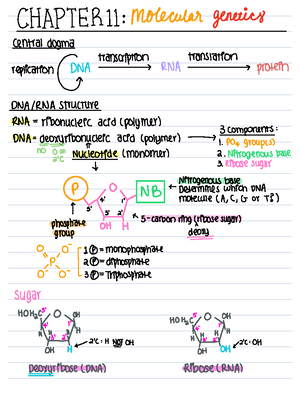 CHAPTER 11: Molecular genetics
Central dogma
replication DNA transcription RNA translation protein
DNA/RNA STRUCTURE
RNA = ribonucleic acid (polymer)
DNA = deoxyribonucleic acid (polymer)
NO O
2'C
Nucleotide (monomer)
3 components:
1. PO4 group(s)
2. Nitrogenous base
3. Ribose sugar
P
O
NB
5'
4'
3'
2'
1'
OH
Nitrogenous base
Determines which DNA
molecule (A, C, G or T?)
phosphate
group
5-carbon ring (ribose sugar)
deoxy
O-
O P O-
O-
1 P = monophosphate
2 P = diphosphate
3 P = Triphosphate
Sugar
HOH2C O OH
H H H H
OH H
2'C: H NOT OH
Deoxyribose (DNA)
HOH2C O OH
H H H H
OH OH
2'C: OH
Ribose (RNA)